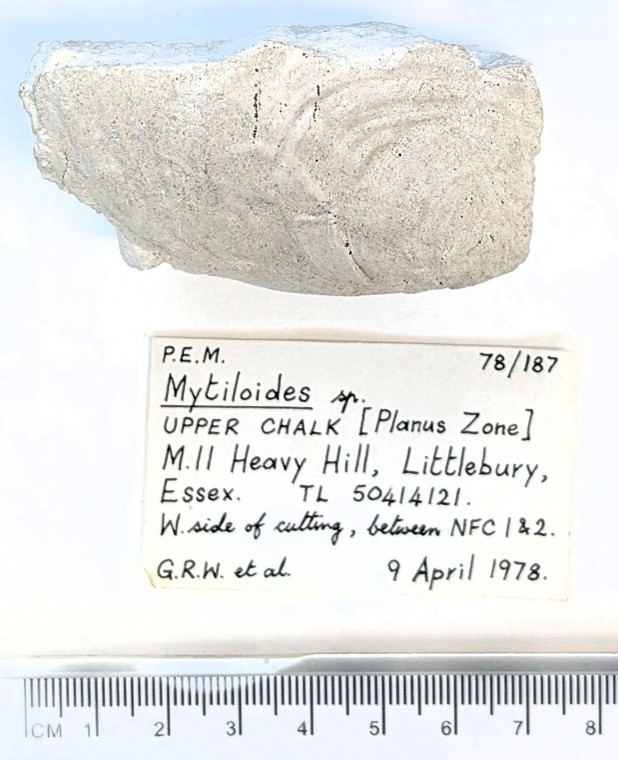 P.E.M. 78/187
Mytiloides sp.
UPPER CHALK [Planus Zone]
M.11 Heavy Hill, Littlebury,
Essex. TL 50414121.
W. side of cutting, between NFC 1 & 2.
G.R.W. et al. 9 April 1978.
CM 1 2 3 4 5 6 7 8